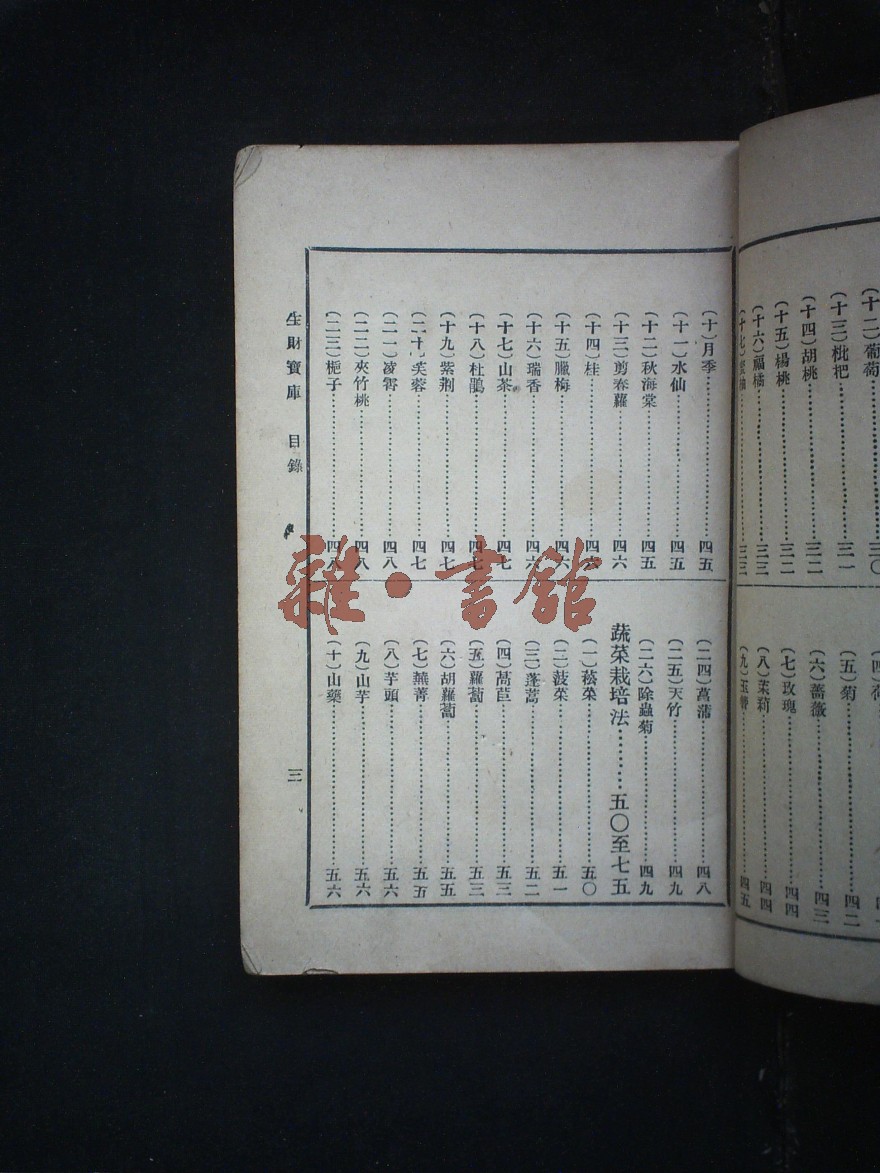 (十二)葡萄……三〇
(十三)枇杷……三一
(十四)胡桃……三二
(十五)楊桃……三二
(十六)福橘……三三
(十七)……三三
(五)菊……四二
(六)薔薇……四三
(七)玫瑰……四四
(八)茉莉……四四
(九)玉簪……四五
(十)月季……四五
(十一)水仙……四五
(十二)秋海棠……四五
(十三)剪春羅……四六
(十四)桂……四六
(十五)臘梅……四六
(十六)瑞香……四六
(十七)山茶……四七
(十八)杜鵑……四七
(十九)紫荆……四七
(二十)芙蓉……四七
(二一)凌霄……四八
(二二)夾竹桃……四八
(二三)梔子……四八
(二四)菖蒲……四八
(二五)天竹……四九
(二六)除蟲菊……四九
蔬菜栽培法……五〇至七五
(一)菘菜……五〇
(二)菠菜……五一
(三)蓬蒿……五二
(四)萵苣……五三
(五)蘿蔔……五三
(六)胡蘿蔔……五五
(七)蕪菁……五五
(八)芋頭……五六
(九)山芋……五六
(十)山藥……五六
生財寶庫 目錄 三
雜·書館